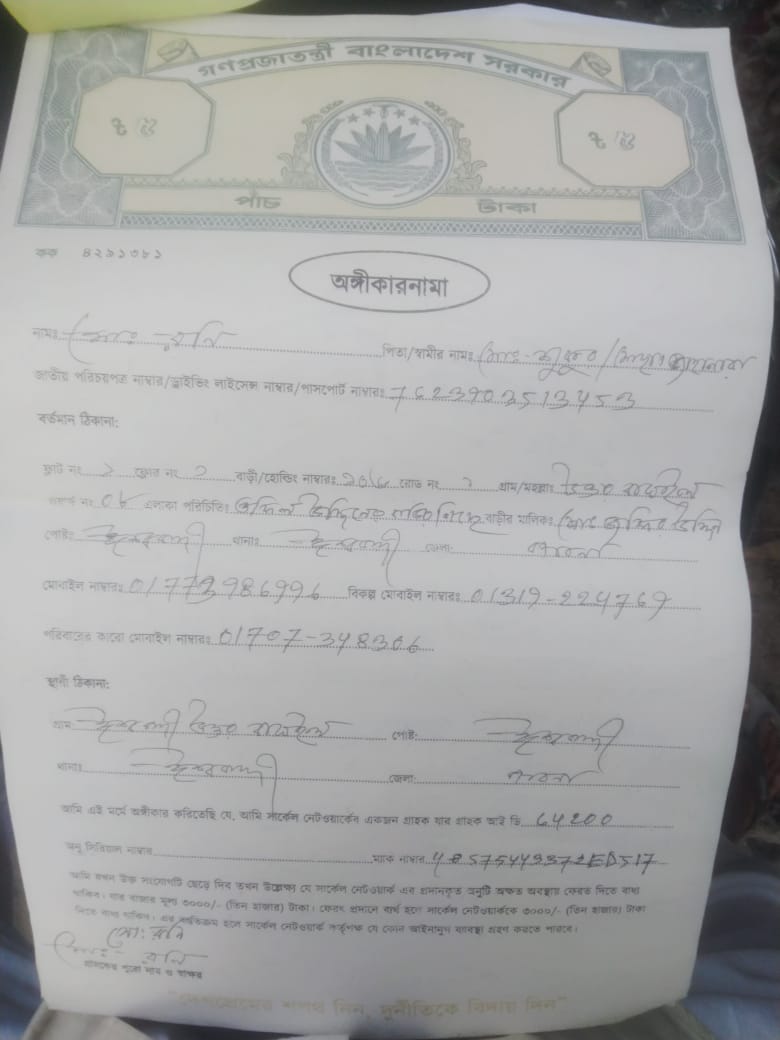 গণপ্রজাতন্ত্রী বাংলাদেশ সরকার
পাঁচ টাকা
কক ৪২৯১৩৮১
অঙ্গীকারনামা
নামঃ মোঃ রনি পিতা/স্বামীর নামঃ
জাতীয় পরিচয়পত্র নাম্বার/ড্রাইভিং লাইসেন্স নাম্বার/পাসপোর্ট নাম্বারঃ 7623903513453
বর্তমান ঠিকানা:
ফ্লাট নং ফ্লোর নং বাড়ী/হোল্ডিং নাম্বারঃ রোড নং গ্রাম/মহল্লাঃ
ওয়ার্ড নং 08 এলাকা পরিচিতিঃ বাড়ীর মালিকঃ
পোষ্ট: ঈশ্বরদী থানাঃ ঈশ্বরদী জেলা: পাবনা
মোবাইল নাম্বারঃ 01773986996 বিকল্প মোবাইল নাম্বারঃ 01319-224769
পরিবারের কারো মোবাইল নাম্বারঃ 01707-348306
স্থায়ী ঠিকানা:
গ্রাম ঈশ্বরদী পোষ্ট: ঈশ্বরদী
থানাঃ ঈশ্বরদী জেলা: পাবনা
আমি এই মর্মে অঙ্গীকার করিতেছি যে, আমি সার্কেল নেটওয়ার্কের একজন গ্রাহক যার গ্রাহক আই ডি 64200
অনু সিরিয়াল নাম্বার ম্যাক নাম্বার 48575443372ED517
আমি যখন উক্ত সংযোগটি ছেড়ে দিব তখন উল্লেখ্য যে সার্কেল নেটওয়ার্ক এর প্রদানকৃত অনুটি অক্ষত অবস্থায় ফেরত দিতে বাধ্য
থাকিব। যার বাজার মূল্য ৩০০০/- (তিন হাজার) টাকা। ফেরৎ প্রদানে ব্যর্থ হলে সার্কেল নেটওয়ার্ককে ৩০০০/- (তিন হাজার) টাকা
দিতে বাধ্য থাকিব। এর ব্যতিক্রম হলে সার্কেল নেটওয়ার্ক কর্তৃপক্ষ যে কোন আইনানুগ ব্যবস্থা গ্রহণ করতে পারবে।
মো: রনি
মোঃ রনি
গ্রাহকের পুরো নাম ও স্বাক্ষর
"দেশপ্রেমের শপথ নিন, দুর্নীতিকে বিদায় দিন"